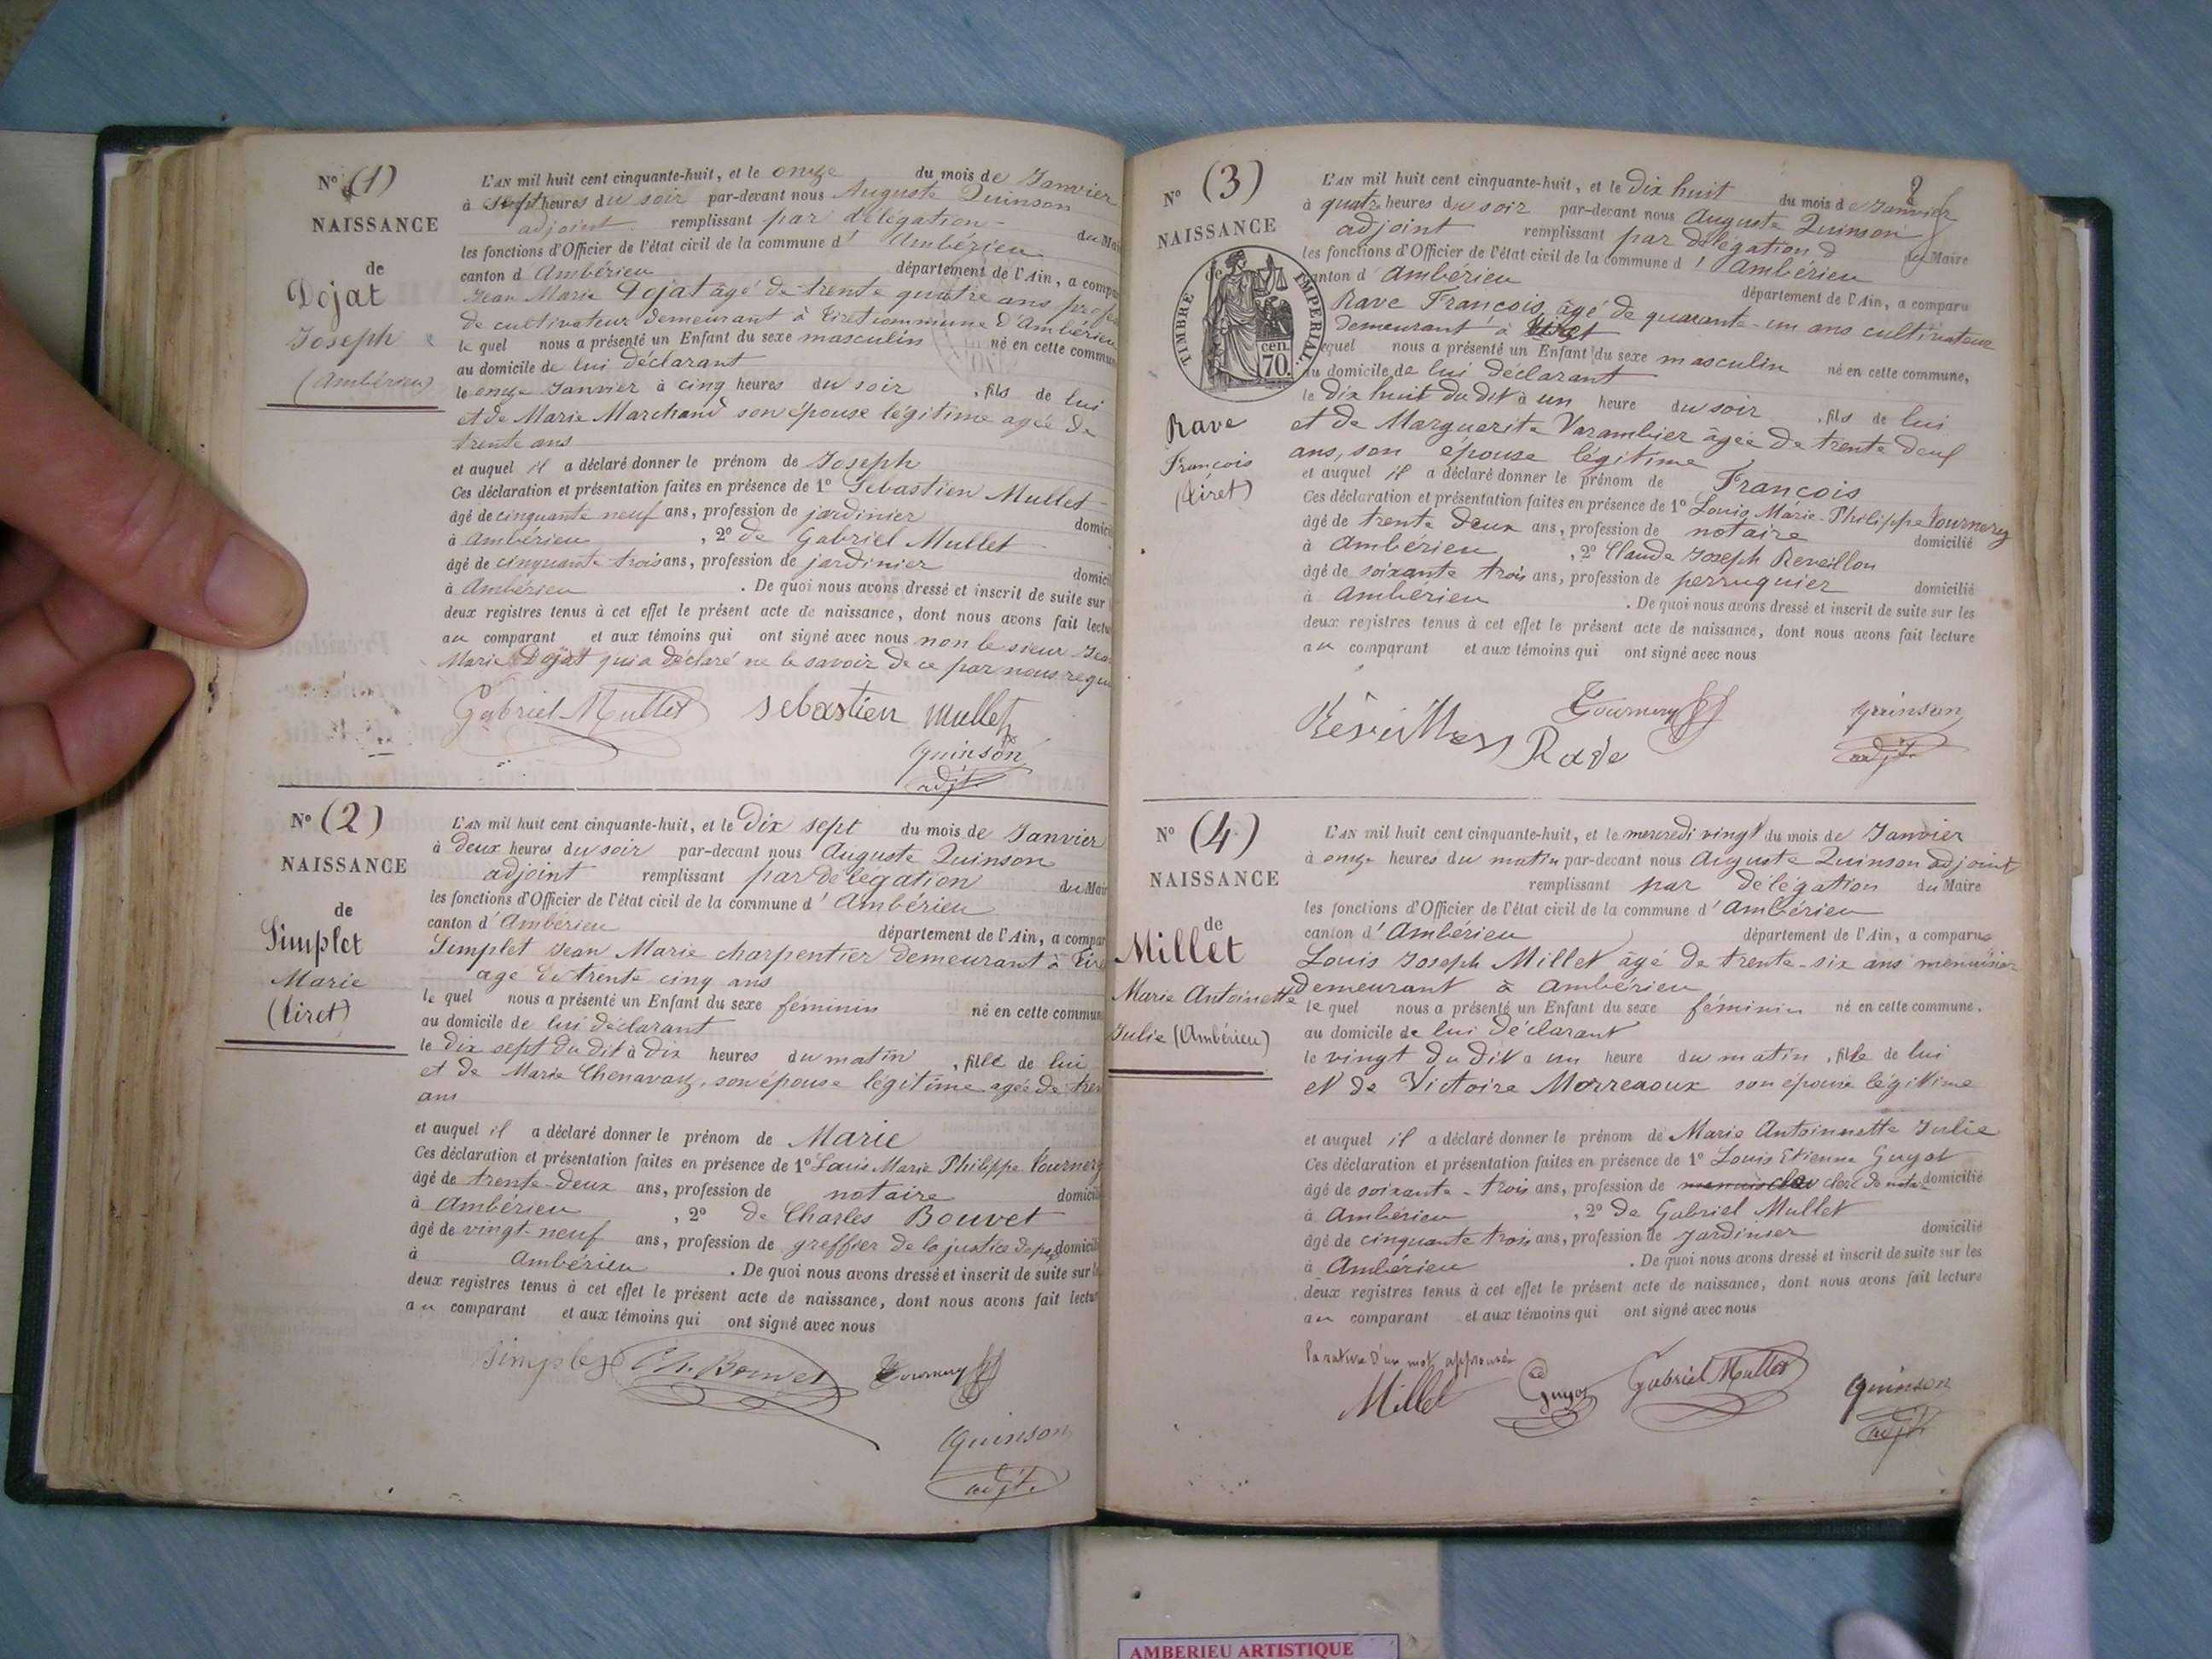 N° (1)
NAISSANCE
de
Dojat
Joseph
(Ambérieu)
L'AN mil huit cent cinquante-huit, et le onze du mois de Janvier
à sept heures du soir par-devant nous Auguste Quinson
adjoint remplissant par délégation du Mai
les fonctions d'Officier de l'état civil de la commune d' Ambérieu
canton d Ambérieu département de l'Ain, a compa
Jean Marie Dojat âgé de trente quatre ans prof
de cultivateur demeurant à Tiret commune d'Ambérieu
le quel nous a présenté un Enfant du sexe masculin né en cette commu
au domicile de lui déclarant
le onze Janvier à cinq heures du soir , fils de lui
et de Marie Marchand son épouse légitime agée de
trente ans
et auquel il a déclaré donner le prénom de Joseph
Ces déclaration et présentation faites en présence de 1° Sebastien Mullet
âgé de cinquante neuf ans, profession de jardinier domici
à Ambérieu , 2° de Gabriel Mullet
âgé de cinquante trois ans, profession de jardinier domici
à Ambérieu . De quoi nous avons dressé et inscrit de suite sur
deux registres tenus à cet effet le présent acte de naissance, dont nous avons fait lectu
au comparant et aux témoins qui ont signé avec nous non le sieur Jea
Marie Dojat qui a déclaré ne le savoir de ce par nous requ
Gabriel Mullet sebastien mullet
quinson
adjt.
N° (2)
NAISSANCE
de
Simplet
Marie
(Tiret)
L'AN mil huit cent cinquante-huit, et le dix sept du mois de Janvier
à deux heures du soir par-devant nous Auguste Quinson
adjoint remplissant par délégation du Mair
les fonctions d'Officier de l'état civil de la commune d' Ambérieu
canton d' Ambérieu département de l'Ain, a compar
Simplet Jean Marie charpentier demeurant à Tire
age de trente cinq ans
le quel nous a présenté un Enfant du sexe féminin né en cette commun
au domicile de lui déclarant
le dix sept du dit à dix heures du matin , fille de lui
et de Marie Chenavaz, son épouse légitime agée de tren
ans
et auquel il a déclaré donner le prénom de Marie
Ces déclaration et présentation faites en présence de 1° Louis Marie Philippe Tournery
âgé de trente-deux ans, profession de notaire domicil
à Ambérieu , 2° de Charles Bouvet
âgé de vingt-neuf ans, profession de greffier de la justice de paix domicili
à Ambérieu . De quoi nous avons dressé et inscrit de suite sur le
deux registres tenus à cet effet le présent acte de naissance, dont nous avons fait lectur
au comparant et aux témoins qui ont signé avec nous
Simplet Ch. Bouvet Tournery
quinson
adjt.
2
N° (3)
NAISSANCE
de
TIMBRE IMPERIAL.
70 cen.
Rave
François
(Tiret)
L'AN mil huit cent cinquante-huit, et le dix huit du mois de Janvier
à quatre heures du soir par-devant nous Auguste Quinson
adjoint remplissant par délégation d du Maire
les fonctions d'Officier de l'état civil de la commune d' Ambérieu
canton d' Ambérieu département de l'Ain, a comparu
Rave François, âgé de quarante-un ans cultivateur
demeurant à Tiret
lequel nous a présenté un Enfant du sexe masculin né en cette commune,
au domicile de lui déclarant
le dix huit du dit à un heure du soir , fils de lui
et de Marguerite Varambier âgée de trente deux
ans, son épouse légitime
et auquel il a déclaré donner le prénom de François
Ces déclaration et présentation faites en présence de 1° Louis Marie-Philippe Tournery
âgé de trente deux ans, profession de notaire domicilié
à Ambérieu , 2° Claude Joseph Reveillon
âgé de soixante trois ans, profession de perruquier domicilié
à Ambérieu . De quoi nous avons dressé et inscrit de suite sur les
deux registres tenus à cet effet le présent acte de naissance, dont nous avons fait lecture
au comparant et aux témoins qui ont signé avec nous
Tournery quinson
Rave adjt.
N° (4)
NAISSANCE
de
Millet
Marie Antoinette
Julie (Ambérieu)
L'AN mil huit cent cinquante-huit, et le mercredi vingt du mois de Janvier
à onze heures du matin par-devant nous Auguste Quinson adjoint
remplissant par délégation du Maire
les fonctions d'Officier de l'état civil de la commune d' Ambérieu
canton d' Ambérieu département de l'Ain, a comparu
Louis Joseph Millet âgé de trente-six ans menuisier
demeurant à Ambérieu
le quel nous a présenté un Enfant du sexe féminin né en cette commune.
au domicile de lui déclarant
le vingt du dit à un heure du matin , fille de lui
et de Victoire Morreaoux son épouse légitime
et auquel il a déclaré donner le prénom de Marie Antoinnette Julie
Ces déclaration et présentation faites en présence de 1° Louis Etienne Guyot
âgé de soixante-trois ans, profession de clerc de notaire domicilié
à Ambérieu , 2° de Gabriel Mullet
âgé de cinquante trois ans, profession de jardinier domicilié
à Ambérieu . De quoi nous avons dressé et inscrit de suite sur les
deux registres tenus à cet effet le présent acte de naissance, dont nous avons fait lecture
au comparant et aux témoins qui ont signé avec nous
la rature d'un mot approuvée
Millet Guyot Gabriel Mullet quinson
adjt
AMBERIEU ARTISTIQUE